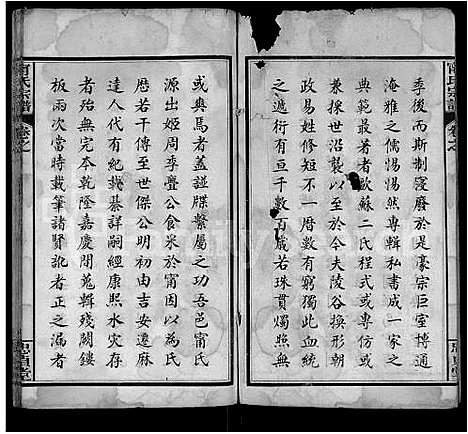 季後而斯制寖廢於是豪宗巨室博通
淹雅之儒惕惕然專輯私書成一家之
典最著者歐蘇二氏程式或專或仿
兼採世沿襲以到於今夫陵谷換形朝
政易姓修短不一曆數有窮獨此血統
之遞衍有亘千數百歲若珠貫燭照無
或爽焉者蓋譜牒繫屬之功吾邑甯氏
源出姬周季亹公食采於甯因以為氏
歷若干世至世傑公明初由吉安遷麻
達人代有紀載綦詳嗣經康熙水災存
者殆無完本乾隆嘉慶間蒐輯殘闕鏤
板兩次當時載筆諸賢訛者正之漏者
甯氏宗譜
卷之
甯氏宗譜
卷之